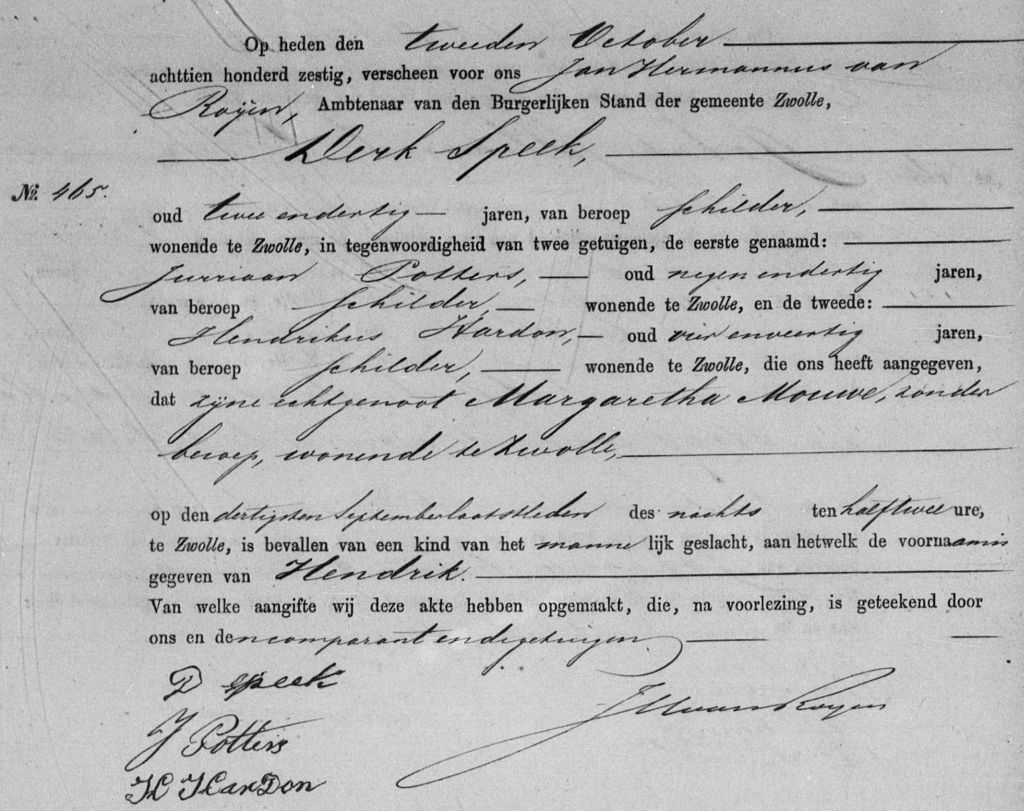 Op heden den tweeden October
achttien honderd zestig, verscheen voor ons Jan Hermannus van
Roÿen, Ambtenaar van den Burgerlijken Stand der gemeente Zwolle,
Derk Speek,
No. 465.
oud twee endertig jaren, van beroep schilder,
wonende te Zwolle, in tegenwoordigheid van twee getuigen, de eerste genaamd:
Jurriaan Potters, oud negen endertig jaren,
van beroep schilder, wonende te Zwolle, en de tweede:
Hendrikus Hardon, oud vier enveertig jaren,
van beroep schilder, wonende te Zwolle, die ons heeft aangegeven,
dat zijne echtgenoot Margaretha Mouwe, zonder
beroep, wonende te Zwolle,
op den dertigsten September laatstleden des nachts ten half twee ure,
te Zwolle, is bevallen van een kind van het mannelijk geslacht, aan hetwelk de voornaam is
gegeven van Hendrik.
Van welke aangifte wij deze akte hebben opgemaakt, die, na voorlezing, is geteekend door
ons en den comparant en de getuigen
D Speek
J Potters
H HarDon
JHvanRoyen